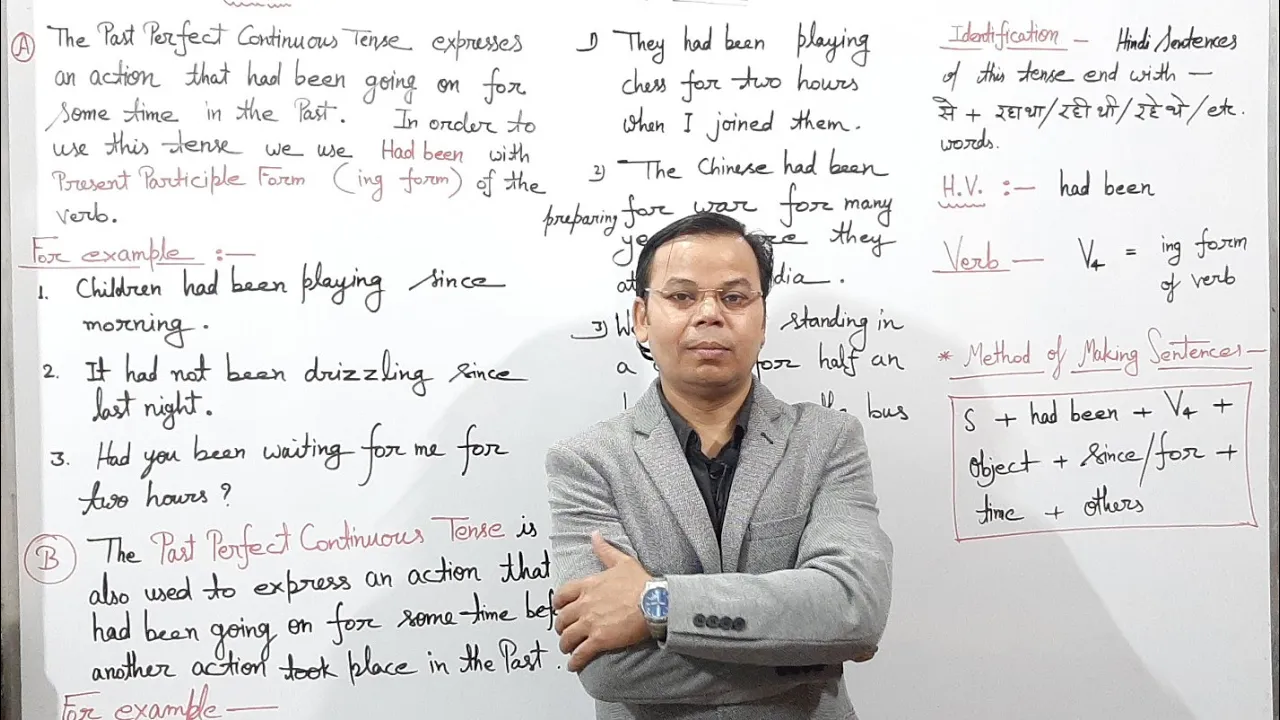 A The Past Perfect Continuous Tense expresses
an action that had been going on for
some time in the Past. In order to
use this tense we use Had been with
Present Participle Form (ing form) of the
verb.
For example :-
1. Children had been playing since
morning.
2. It had not been drizzling since
last night.
3. Had you been waiting for me for
two hours?
B The Past Perfect Continuous Tense is
also used to express an action that
had been going on for some time
another action took place in the Past.
For example —
1) They had been playing
chess for two hours
when I joined them.
2) The Chinese had been
preparing for war for many
they
.
3) standing in
a half an
bus
Identification - Hindi Sentences
of this tense end with —
से + रहा था/रही थी/रहे थे/etc.
words.
H.V. :- had been
Verb — V4 = ing form
of verb
* Method of Making Sentences —
S + had been + V4 +
object + since/for +
time + others